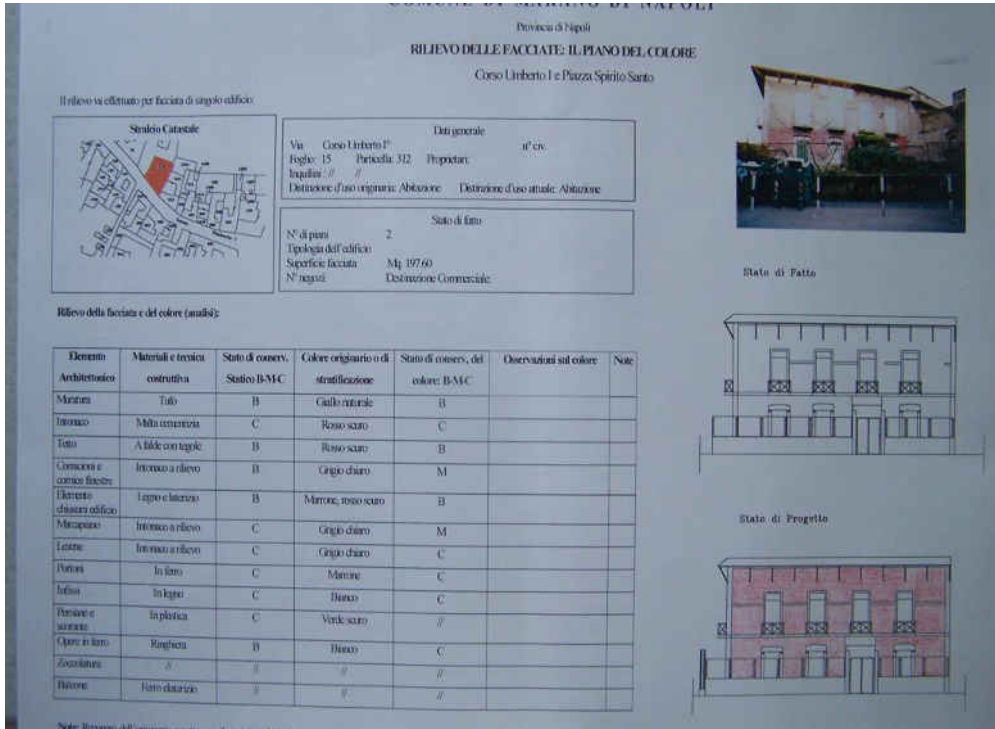 COMUNE DI MARANO DI NAPOLI
Provincia di Napoli
RILIEVO DELLE FACCIATE: IL PIANO DEL COLORE
Corso Umberto I e Piazza Spirito Santo
Il rilievo va effettuato per facciata di singolo edificio
Stralcio Catastale
Dati generale
Via Corso Umberto I° n° civ.
Foglio: 15 Particella: 312 Proprietari:
Inquilini : // //
Distinzione d'uso originaria: Abitazione Distinzione d'uso attuale: Abitazione
Stato di fatto
N° di piani 2
Tipologia dell'edificio
Superficie facciata Mq. 197.60
N° negozi Destinazione Commerciale:
Stato di Fatto
Rilievo della facciata e del colore (analisi):
Elemento Architettonico Materiali e tecnica costruttiva Stato di conserv. Statico B-M-C Colore originario o di stratificazione Stato di conserv. del colore: B-M-C Osservazioni sul colore Note
Muratura Tufo B Giallo naturale B
Intonaco Malta cementizia C Rosso scuro C
Tetto A falde con tegole B Rosso scuro B
Cornicioni e cornice finestre Intonaco a rilievo B Grigio chiaro M
Elemento chiusura edificio Legno e laterizio B Marrone, rosso scuro B
Marcapiano Intonaco a rilievo C Grigio chiaro M
Lesene Intonaco a rilievo C Grigio chiaro C
Portoni In ferro C Marrone C
Infissi In legno C Bianco C
Persiane e In plastica C Verde scuro //
Opere in ferro Ringhiera B Bianco C
Zoccolatura // // // //
Balcone // // //
Stato di Progetto